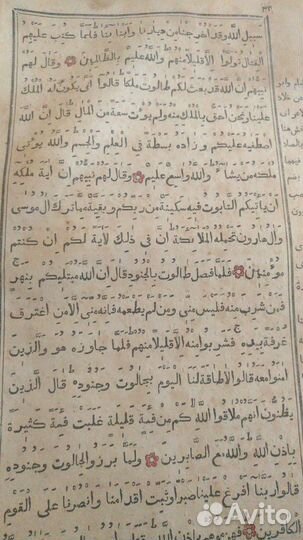 ٣٢
سبيل الله وقد اخرجنا من ديارنا وابنائنا فلما كتب عليهم
القتال تولوا الا قليلا منهم والله عليم بالظالمين وقال لهم
نبيهم ان الله قد بعث لكم طالوت ملكا قالوا انى يكون له الملك
علينا ونحن احق بالملك منه ولم يؤت سعة من المال قال ان الله
اصطفيه عليكم وزاده بسطة في العلم والجسم والله يؤتي
ملكه من يشاء والله واسع عليم وقال لهم نبيهم ان آية ملكه
ان ياتيكم التابوت فيه سكينة من ربكم وبقية مما ترك ال موسى
وال هارون تحمله الملائكة ان في ذلك لآية لكم ان كنتم
مؤمنين فلما فصل طالوت بالجنود قال ان الله مبتليكم بنهر
فمن شرب منه فليس مني ومن لم يطعمه فانه مني الا من اغترف
غرفة بيده فشربوا منه الا قليلا منهم فلما جاوزه هو والذين
امنوا معه قالوا لا طاقة لنا اليوم بجالوت وجنوده قال الذين
يظنون انهم ملاقوا الله كم من فئة قليلة غلبت فئة كثيرة
باذن الله والله مع الصابرين ولما برزوا لجالوت وجنوده
قالوا ربنا افرغ علينا صبرا وثبت اقدامنا وانصرنا على القوم
الكافرين فهزموهم باذن الله
Avito